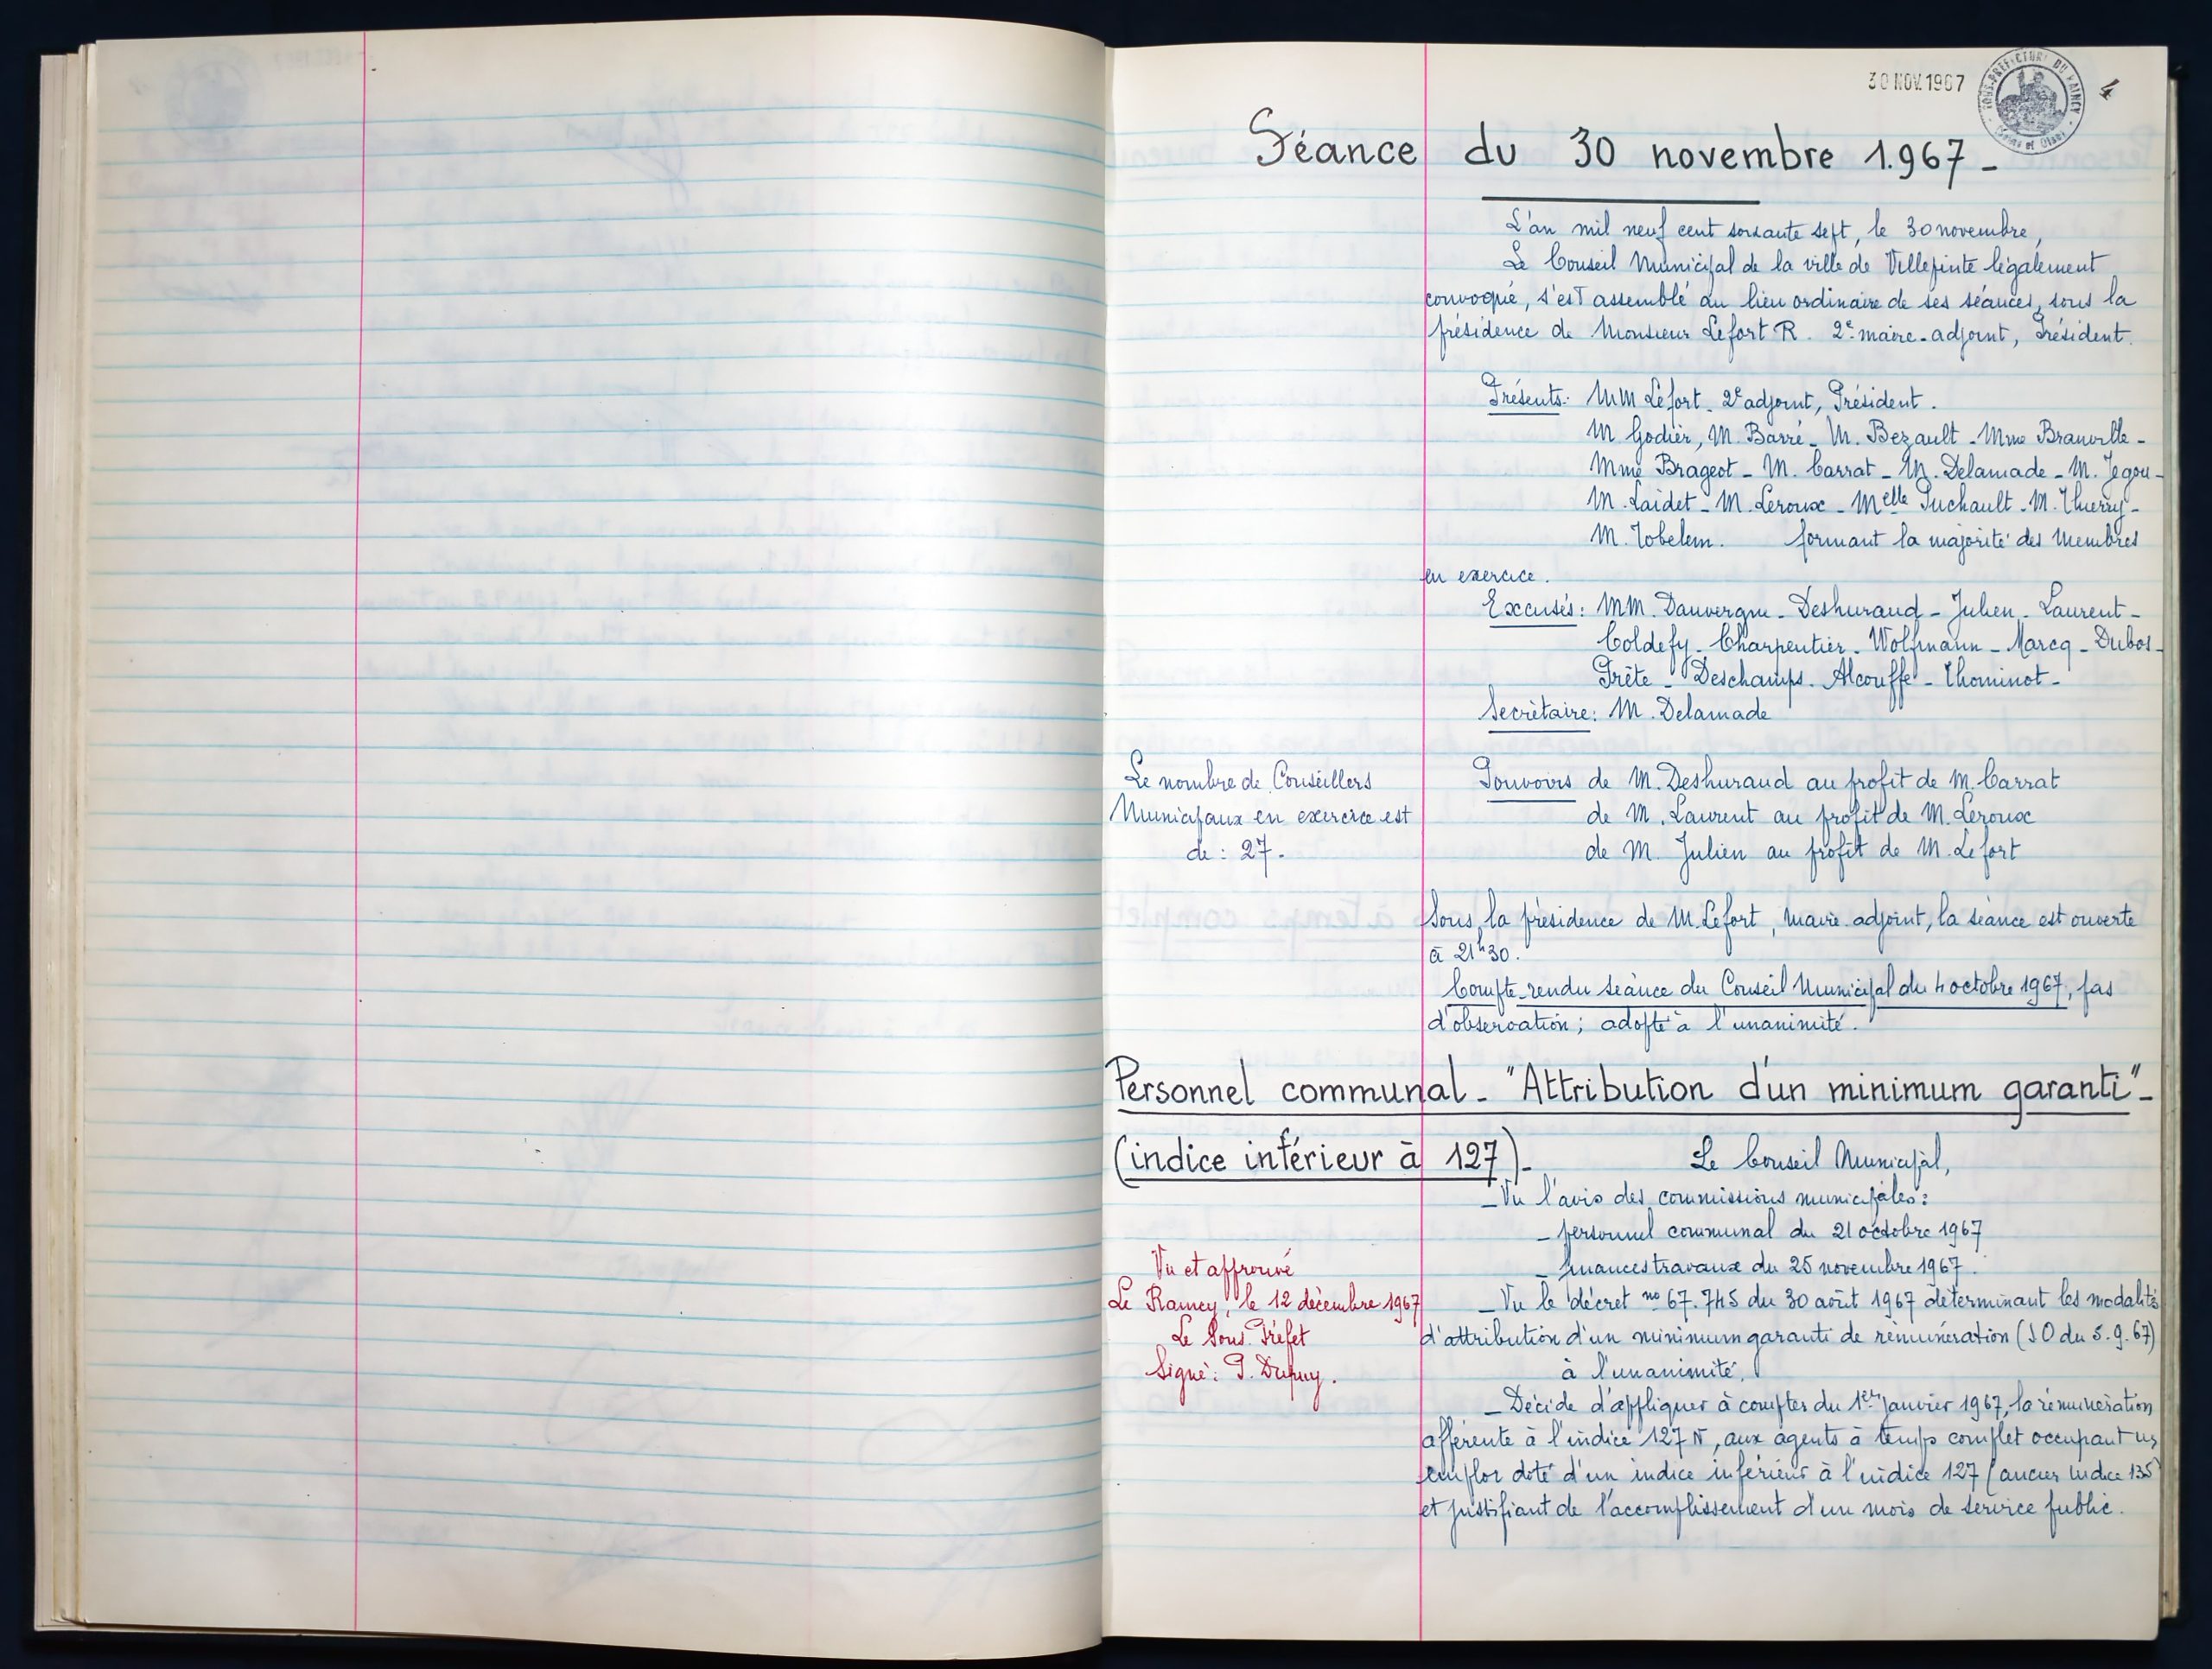 30 NOV. 1967
SOUS-PRÉFECTURE DU RAINCY
Seine et Oise
4
Séance du 30 novembre 1.967 -
L'an mil neuf cent soixante sept, le 30 novembre,
Le Conseil Municipal de la ville de Villepinte légalement
convoqué, s'est assemblé au lieu ordinaire de ses séances, sous la
présidence de Monsieur Lefort R. 2e maire-adjoint, Président.
Présents: MM Lefort - 2e adjoint, Président.
M Godier, M. Barré - M. Bezault - Mme Branville -
Mme Brageot - M. Carrat - M. Delamade - M. Jegou -
M. Laidet - M. Leroux - Melle Puchault - M. Thierry -
M. Tobelem. formant la majorité des Membres
en exercice.
Excusés: MM. Dauvergne - Deshuraud - Julien - Laurent -
Coldefy - Charpentier - Wolfmann - Marcq - Dubos -
Prête - Deschamps - Alcouffe - Thominot -
Secrétaire: M. Delamade
Le nombre de Conseillers
Municipaux en exercice est
de : 27 -
Pouvoirs de M. Deshuraud au profit de M. Carrat
de M. Laurent au profit de M. Leroux
de M. Julien au profit de M. Lefort
Sous la présidence de M. Lefort, maire adjoint, la séance est ouverte
à 21h30.
Compte-rendu séance du Conseil Municipal du 4 octobre 1967, pas
d'observation; adopté à l'unanimité.
Personnel communal - "Attribution d'un minimum garanti" -
(indice inférieur à 127) -
Le Conseil Municipal,
- Vu l'avis des commissions municipales:
- personnel communal du 21 octobre 1967
- finances travaux du 25 novembre 1967.
- Vu le décret no 67.745 du 30 août 1967 déterminant les modalités
d'attribution d'un minimum garanti de rémunération (JO du 5.9.67)
à l'unanimité,
- Décide d'appliquer à compter du 1er janvier 1967, la rémunération
afférente à l'indice 127 N, aux agents à temps complet occupant un
emploi doté d'un indice inférieur à l'indice 127 (ancien indice 135)
et justifiant de l'accomplissement d'un mois de service public.
Vu et approuvé
Le Raincy, le 12 décembre 1967
Le Sous Préfet
Signé: P. Dupuy.